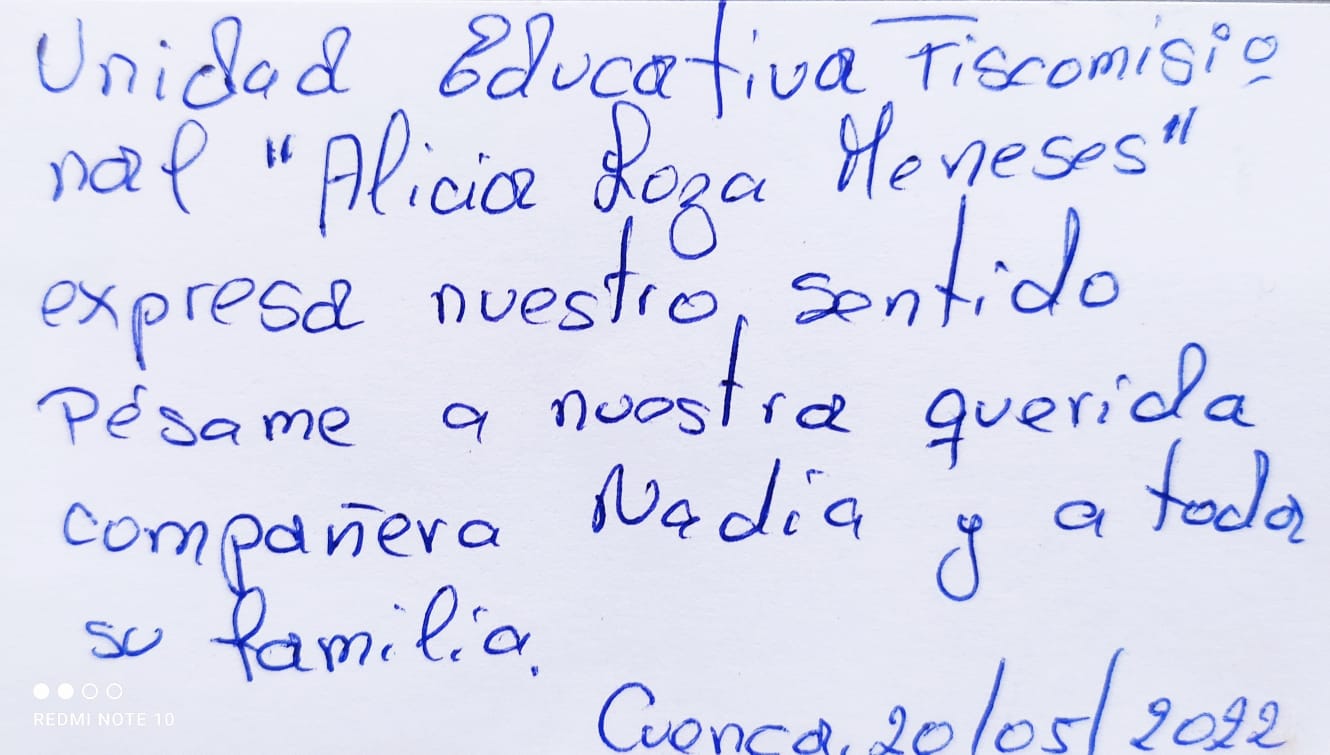 Unidad Educativa Fiscomisio
nal "Alicia Loza Meneses"
expresa nuestro, sentido
Pésame a nuestra querida
compañera Nadia y a toda
su familia.
Cuenca, 20/05/2022
REDMI NOTE 10